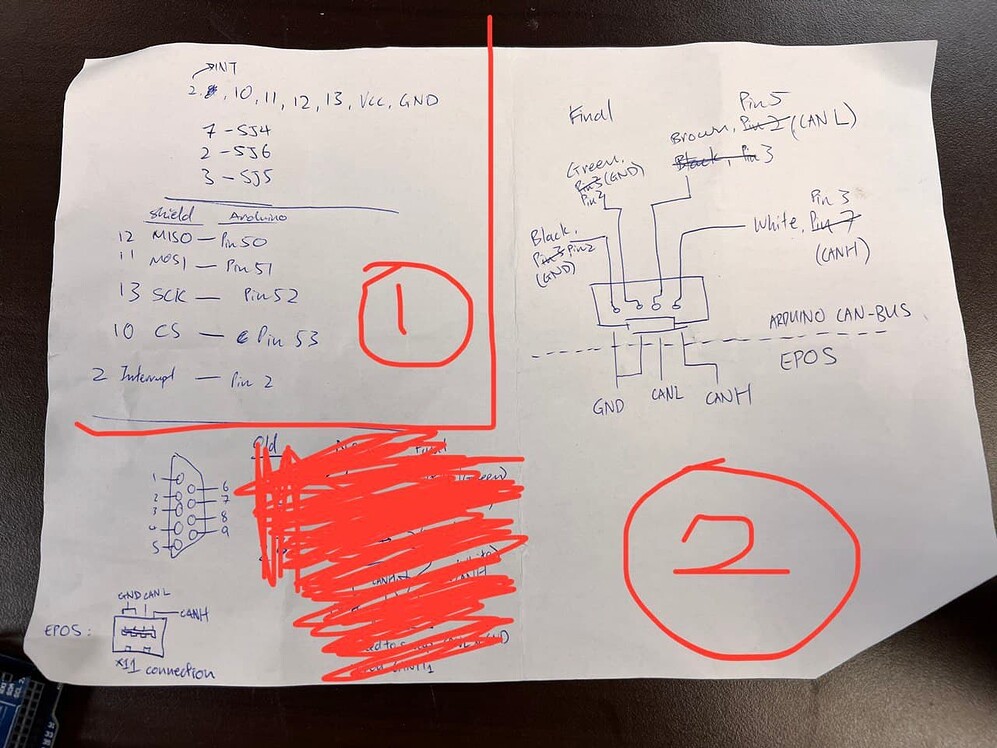 INT
2, 10, 11, 12, 13, Vcc, GND
7 - SJ4
2 - SJ6
3 - SJ5
Shield Arduino
12 MISO — Pin 50
11 MOSI — Pin 51
13 SCK — Pin 52
10 CS — Pin 53
2 Interrupt — Pin 2
1
Final
Pin 5
Brown, Pin 2 (CAN L)
Black, Pin 3
Green,
Pin 3 (GND)
Pin 2
Black,
Pin 3 Pin 2
(GND)
Pin 3
White, Pin 7
(CANH)
ARDUINO CAN-BUS
EPOS
GND CANL CANH
2
Old
1
2
3
4
5
6
7
8
9
GND CAN L
CANH
EPOS:
X11 connection